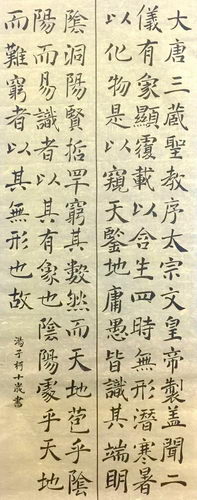 大唐三藏聖教序太宗文皇帝製盖聞二
儀有象顯覆載以含生四時無形潛寒暑
以化物是以窺天鑒地庸愚皆識其端明
陰洞陽賢哲罕窮其數然而天地苞乎陰
陽而易識者以其有象也陰陽處乎天地
而難窮者以其無形也故
馮子柯十歲書